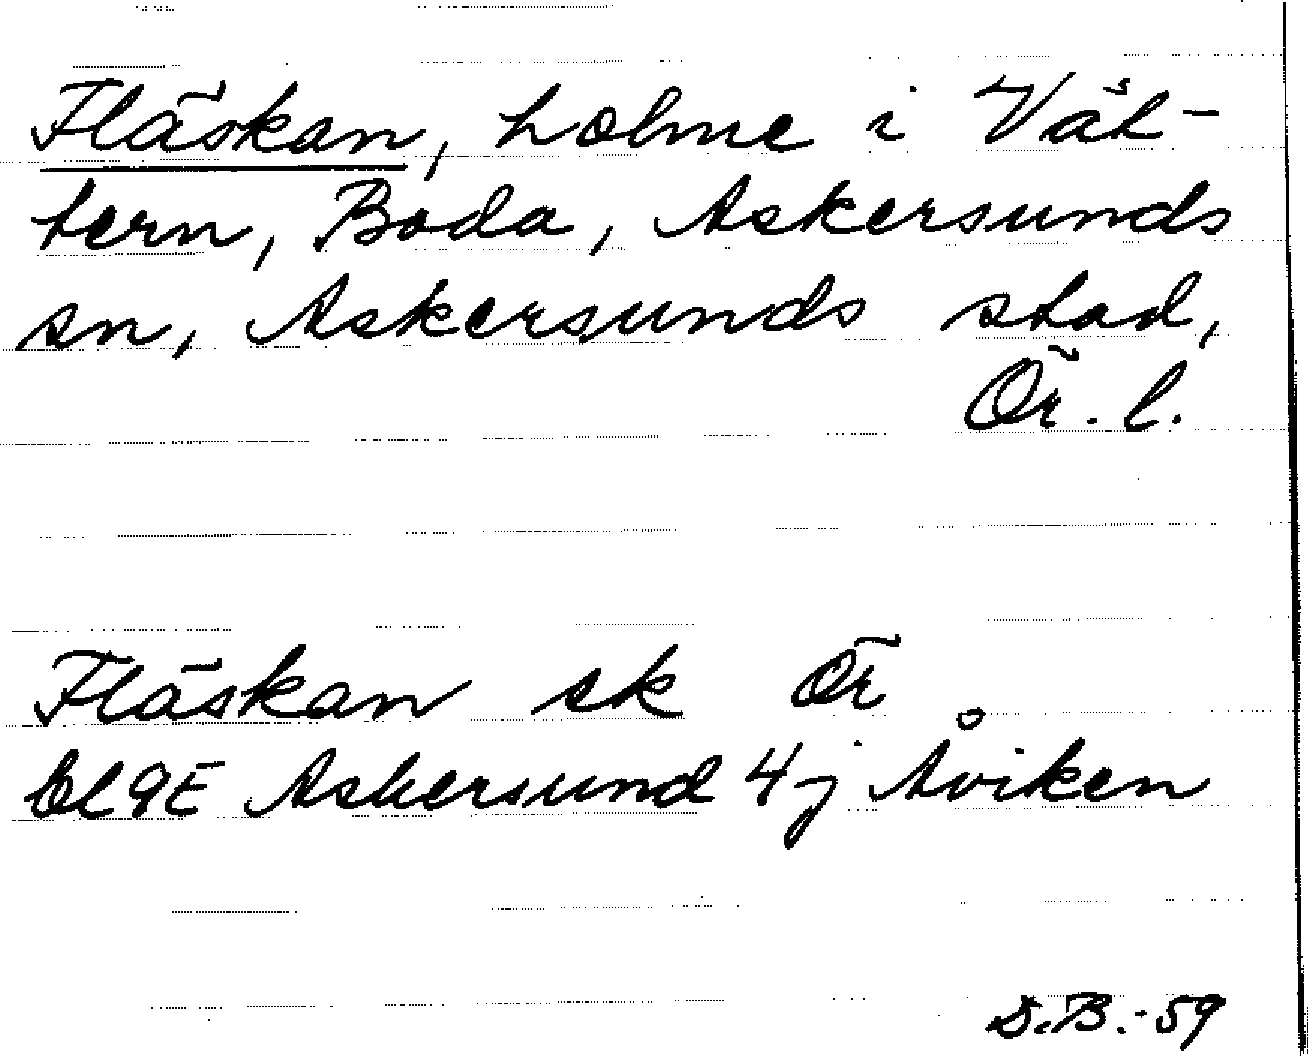 Fläskan, holme i Vät-
tern, Boda, Askersunds
sn, Askersunds stad,
Ör. l.
Fläskan ek Ör
bl 9E Askersund 4j Åviken
D.B.-59